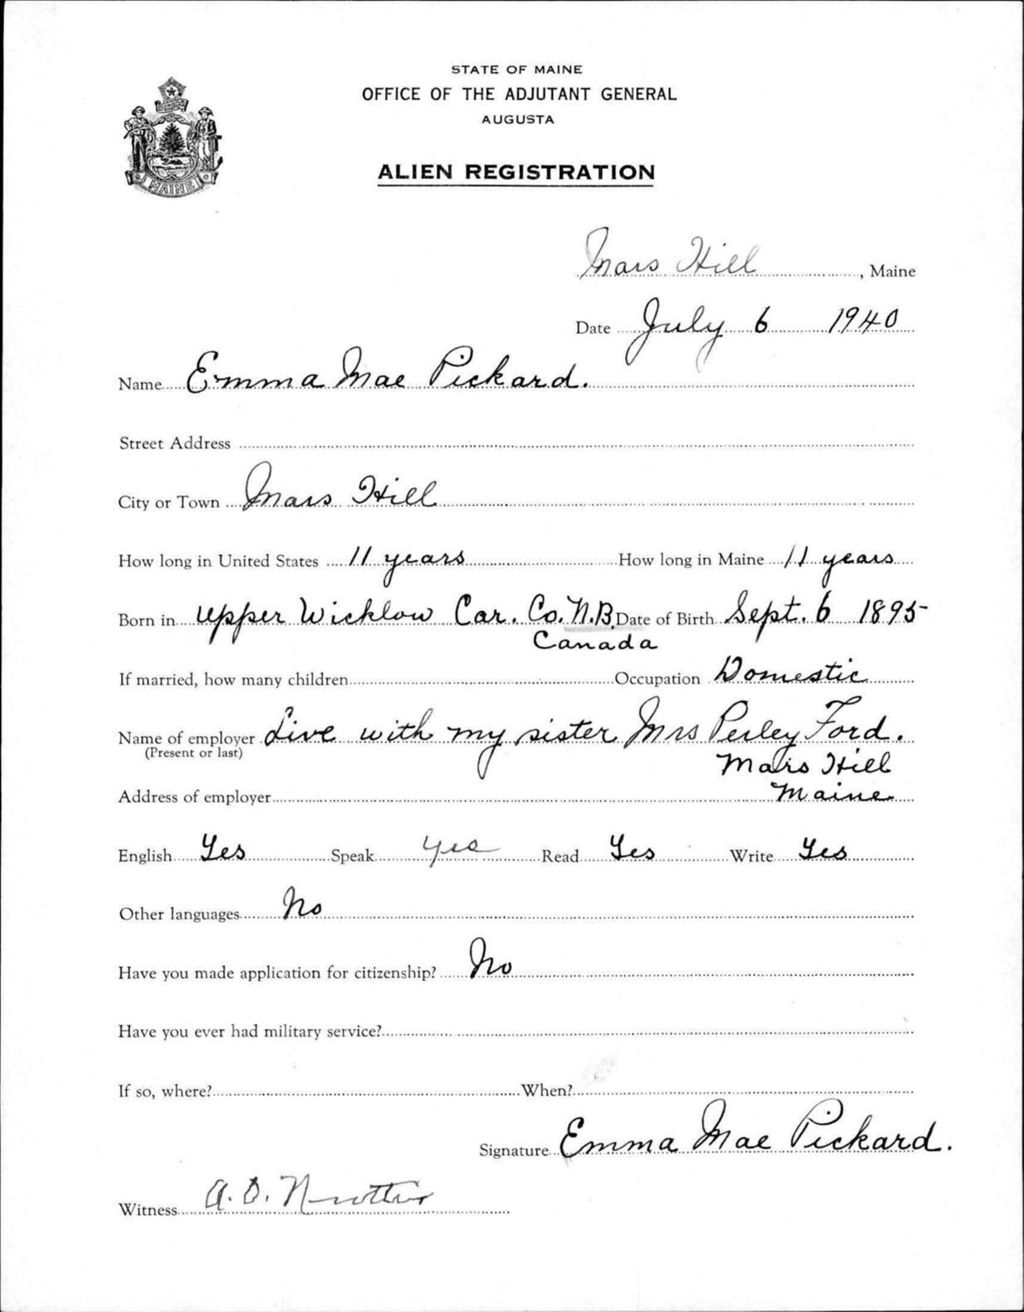 STATE OF MAINE
OFFICE OF THE ADJUTANT GENERAL
AUGUSTA
MAINE
ALIEN REGISTRATION
Mars Hill, Maine
Date July 6 1940
Name Emma Mae Pickard.
Street Address
City or Town Mars Hill
How long in United States 11 years How long in Maine 11 years
Born in upper Wicklow Car. Co. N.B. Date of Birth Sept. 6 1895
Canada
If married, how many children Occupation Domestic
Name of employer Live with my sister Mrs Perley Ford.
(Present or last) Mars Hill
Address of employer Maine
English Yes Speak Yes Read Yes Write Yes
Other languages No
Have you made application for citizenship? No
Have you ever had military service?
If so, where? When?
Signature Emma Mae Pickard.
Witness A. D.